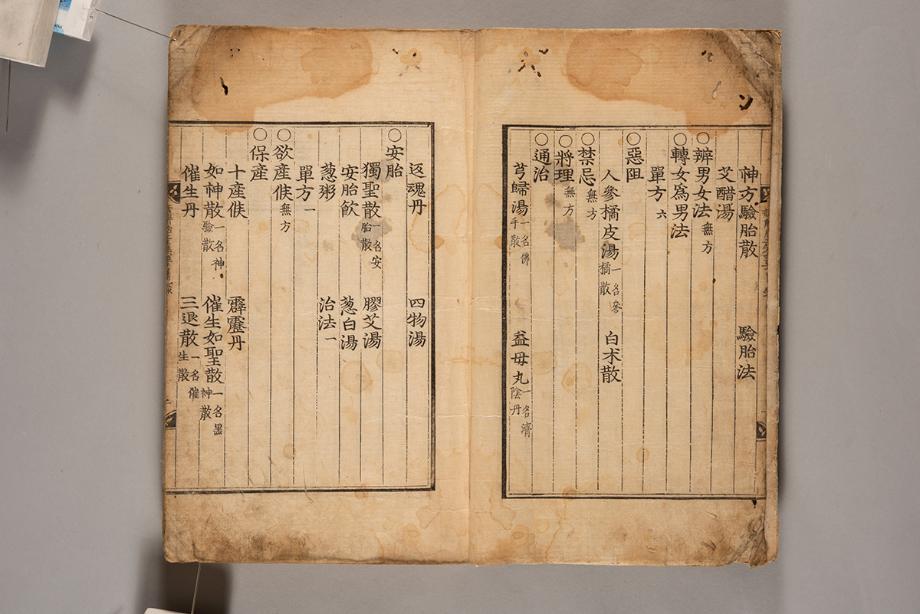 神方驗胎散 驗胎法
艾醋湯
○辨男女法 無方
○轉女爲男法
單方 六
○惡阻
人參橘皮湯 一名參橘散 白朮散
○禁忌 無方
○將理 無方
○通治
芎歸湯 一名佛手散 益母丸 一名濟陰丹
返魂丹 四物湯
○安胎
獨聖散 一名安胎散 膠艾湯
安胎飮 葱白湯
葱粥 治法 一
單方 一
○欲產候 無方
○保產
十產候 霹靂丹
如神散 一名神驗散 催生如聖散 一名黑神散
催生丹 三退散 一名催生散